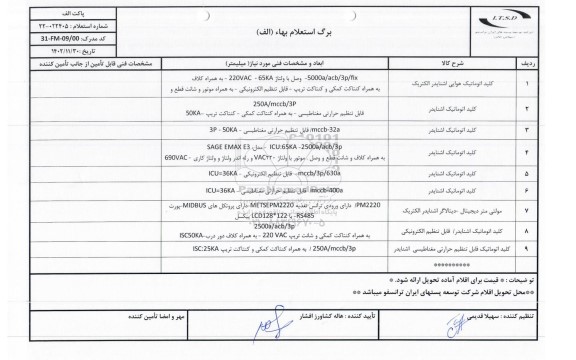 I.T.S.D
برگ استعلام بهاء (الف)
پاکت الف
شماره استعلام : 22-022405
کد مدرک: 31-FM-09/00
تاریخ: 1402/11/30
ردیف شرح کالا ابعاد و مشخصات فنی مورد نیاز( میلیمتر) مشخصات فنی قابل تأمین از جانب تأمین کننده
1 کلید اتوماتیک هوایی اشنایدر الکتریک
5000a/acb/3p/fix- وصل با ولتاژ 220VAC - 65KA - به همراه کلاف
به همراه کنتاکت کمکی و کنتاکت تریپ - قابل تنظیم الکترونیکی - به همراه موتور و شانت قطع و
2 کلید اتوماتیک اشنایدر
250A/mccb/3P
قابل تنظیم حرارتی مغناطیسی - به همراه کنتاکت کمکی - کنتاکت تریپ -50KA
3 کلید اتوماتیک اشنایدر mccb-32a- قابل تنظیم حرارتی مغناطیسی - 3P - 50KA
4 کلید اتوماتیک اشنایدر
2500a/acb/3p- ICU:65KA مدل: SAGE EMAX E3
به همراه کلاف و شانت قطع و وصل
5 کلید اتوماتیک اشنایدر mccb/3p/630a- قابل تنظیم الکترونیکی - ICU=36KA
6 کلید اتوماتیک اشنایدر mccb-400a- قابل تنظیم حرارتی مغناطیسی - ICU=36KA
7 مولتی متر دیجیتال -دیتالاگر اشنایدر الکتریک
PM2220: دارای ورودی ترانس تغذیه METSEPM2220-دارای پروتکل های MIDBUS-پورت
RS485- با LCD128*122 پیکسل
8 کلید اتوماتیک اشنایدر/ قابل تنظیم الکترونیکی
2500a/acb/3p
به همراه کنتاکت کمکی و شانت تریپ 220 VAC - به همراه کلاف دور درب-ISC50KA
9 کلید اتوماتیک قابل تنظیم حرارتی مغناطیسی اشنایدر 250A/mccb/3p / به همراه کنتاکت کمکی و کنتاکت تریپ ISC:25KA
**********
تو ضیحات : * قیمت برای اقلام آماده تحویل ارائه شود. *
**محل تحویل اقلام شرکت توسعه پستهای ایران ترانسفو میباشد **
تنظیم کننده : سهیلا قدیمی تأیید کننده : هاله کشاورز افشار مهر و امضا تأمین کننده :